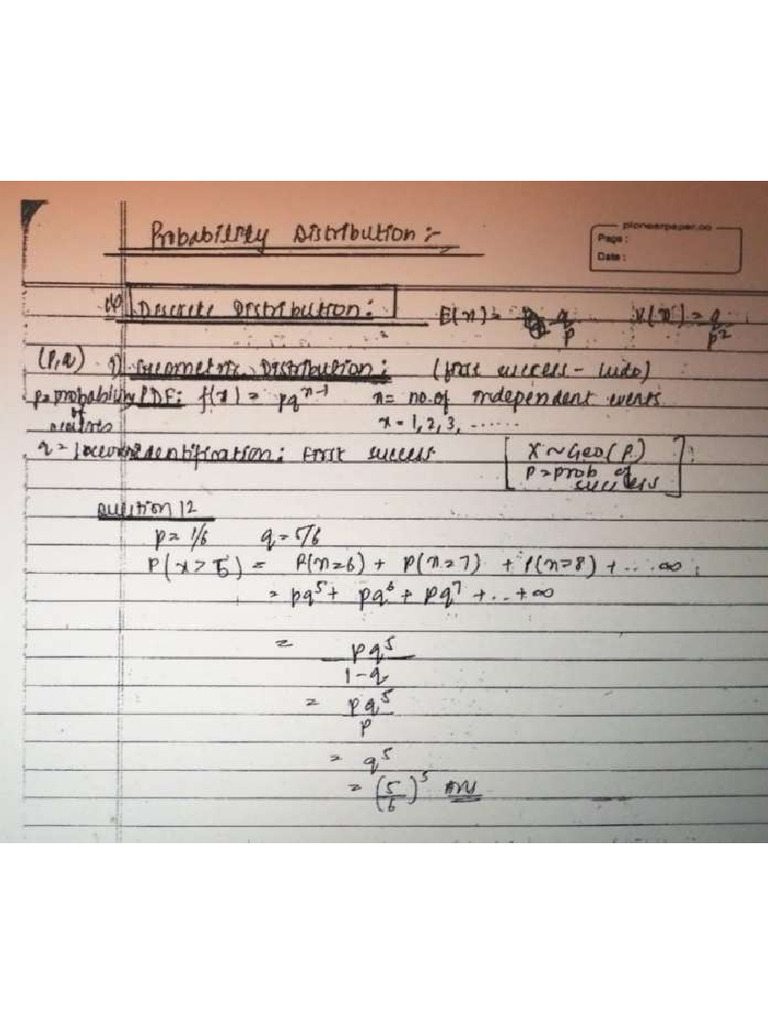 Probability Distribution :-
pioneerpaper.co
Page :
Date :
Discrete Distribution : E(x) = q/p V(x) = q/p²
(p,q) 1) Geometric Distribution : (first success - ludo)
p = probability of PDF: f(x) = pq^(x-1) x = no. of independent events
x = 1, 2, 3, ......
q = 1 Identification : First success [X ~ Geo(P)
P = prob of success]
Question 12
p = 1/6 q = 5/6
P(x > 5) = P(x=6) + P(x=7) + P(x=8) + ... ∞
= pq⁵ + pq⁶ + pq⁷ + .. + ∞
= pq⁵/1-q
= pq⁵/p
= q⁵
= (5/6)⁵ Ans